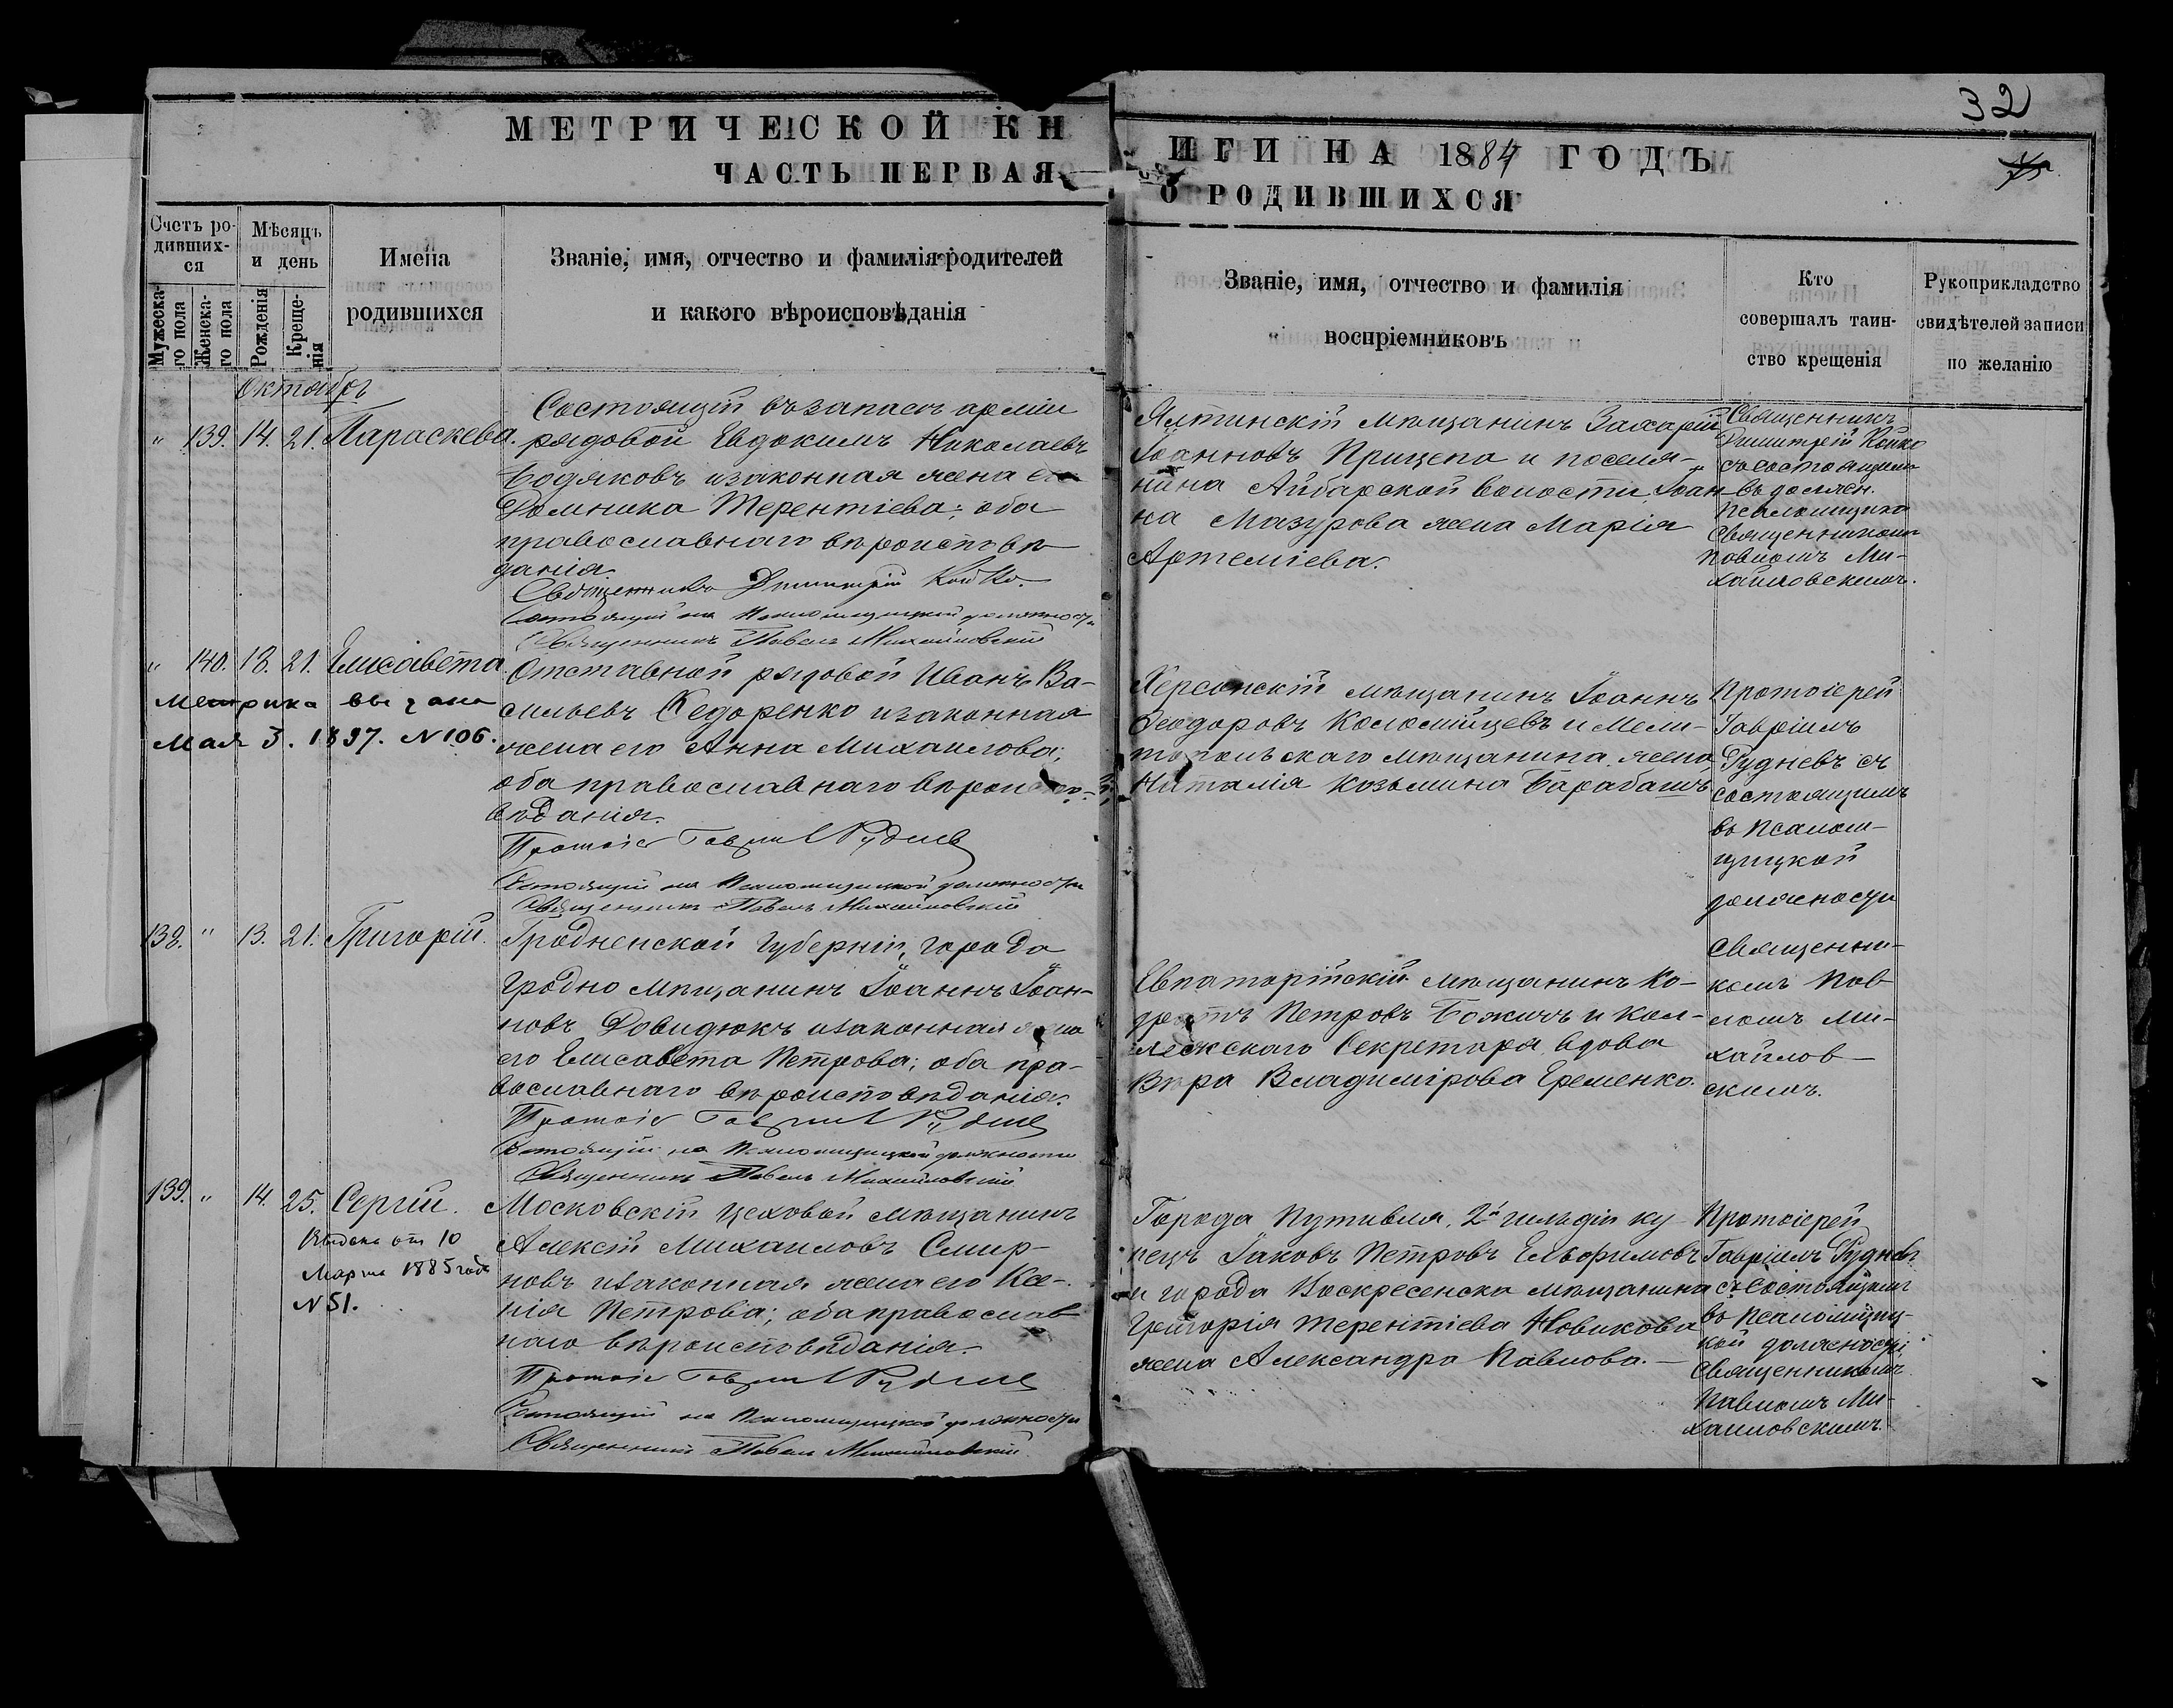 32
МЕТРИЧЕСКОЙ КН
ИГИ НА 1884 ГОДЪ
ЧАСТЬ ПЕРВАЯ
О РОДИВШИХСЯ
Счетъ ро-
дивших-
ся
Мужеска-
го пола
Женска-
го пола
Мѣсяцъ
и день
Рожденія
Креще-
нія
Имена
родившихся
Званіе, имя, отчество и фамилія родителей
и какого вѣроисповѣданія
Званіе, имя, отчество и фамилія
воспріемниковъ
Кто
совершалъ таин-
ство крещенія
Рукоприкладство
свидѣтелей записи
по желанію
Октябрь
" 139. 14. 21. Параскева.
Состоящій въ запасѣ арміи
рядовой Евдокимъ Николаевъ
Бодяковъ и законная жена его
Домника Терентіева; оба
православнаго вѣроисповѣ-
данія.
Священникъ Димитрій Койко.
Состоящій на Псаломщицкой должности
Священникъ Павелъ Михайловскій
Ялтинскій мѣщанинъ Захарій
Іоанновъ Прищепа и поселя-
нина Айбарской волости Іоан-
на Мазурова жена Марія
Артеміева.
Священникъ
Димитрій Койко
съ состоящимъ
въ должен.
Псаломщика
Священникомъ
Павломъ Ми-
хайловскимъ.
" 140. 18. 21. Елисавета
Метрика выдана
Мая 3. 1897. N 106.
Отставной рядовой Иванъ Ва-
сильевъ Седоренко и законная
жена его Анна Михаилова;
оба православнаго вѣроиспо-
вѣданія.
Протоіе Гавріил Руднев
Состоящій на Псаломщицкой должности
Священникъ Павелъ Михайловскій
Херсонскій мѣщанинъ Іоаннъ
Ѳеодоровъ Коломійцевъ и Мели-
топольскаго мѣщанина жена
Наталія Козьмина Барабашъ
Протоіерей
Гавріилъ
Рудневъ съ
состоящимъ
въ Псалом-
щицкой
должности
Священни-
комъ Пав-
ломъ Ми-
хайлов-
скимъ.
138. " 13. 21. Григорій.
Гродненской Губерніи, города
Гродно мѣщанинъ Іоаннъ Іоан-
новъ Довидюкъ и законная жена
его Елисавета Петрова; оба пра-
вославнаго вѣроисповѣданія.
Протоіе Гавріил Руднев
Состоящій на Псаломщицкой должности
Священникъ Павелъ Михайловскій
Евпаторійскій мѣщанинъ Ко-
дратъ Петровъ Божичъ и Кол-
лежскаго Секретаря вдова
Вѣра Владимірова Еременко.
139. " 14. 25. Сергій.
Выдана от 10
Марта 1885 года
N 51.
Московскій цеховой мѣщанинъ
Алексій Михаиловъ Смир-
новъ и законная жена его Ксе-
нія Петрова; оба православ-
наго вѣроисповѣданія.
Протоіе Гавріил Руднев
Состоящій на Псаломщицкой должности
Священникъ Павелъ Михайловскій
Города Путивля, 2й гильдіи ку-
пецъ Іаковъ Петровъ Ельфимовъ
и города Воскресенска мѣщанина
Григорія Терентіева Новикова
жена Александра Павлова.
Протоіерей
Гавріилъ Рудневъ
съ состоящимъ
въ Псаломщиц-
кой должности
Священникомъ
Павломъ Ми-
хайловскимъ.